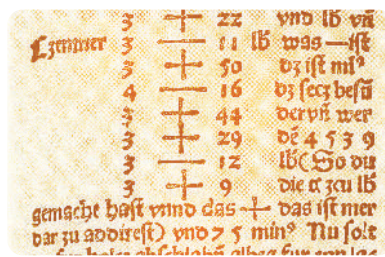 3 + 22 vnd lb vñ
Czentner 3 — 11 lb was — ist
3 + 50 dz ist mi⁹
4 — 16 dz secz besū
3 + 44 der vñ wer
3 + 29 dē 4 5 3 9
3 — 12 lb (So du
3 + 9 die cz zcu lb
gemache hast vnnd das + das ist mer
dar zu addirest) vnd 7 5 min⁹ Nu solt